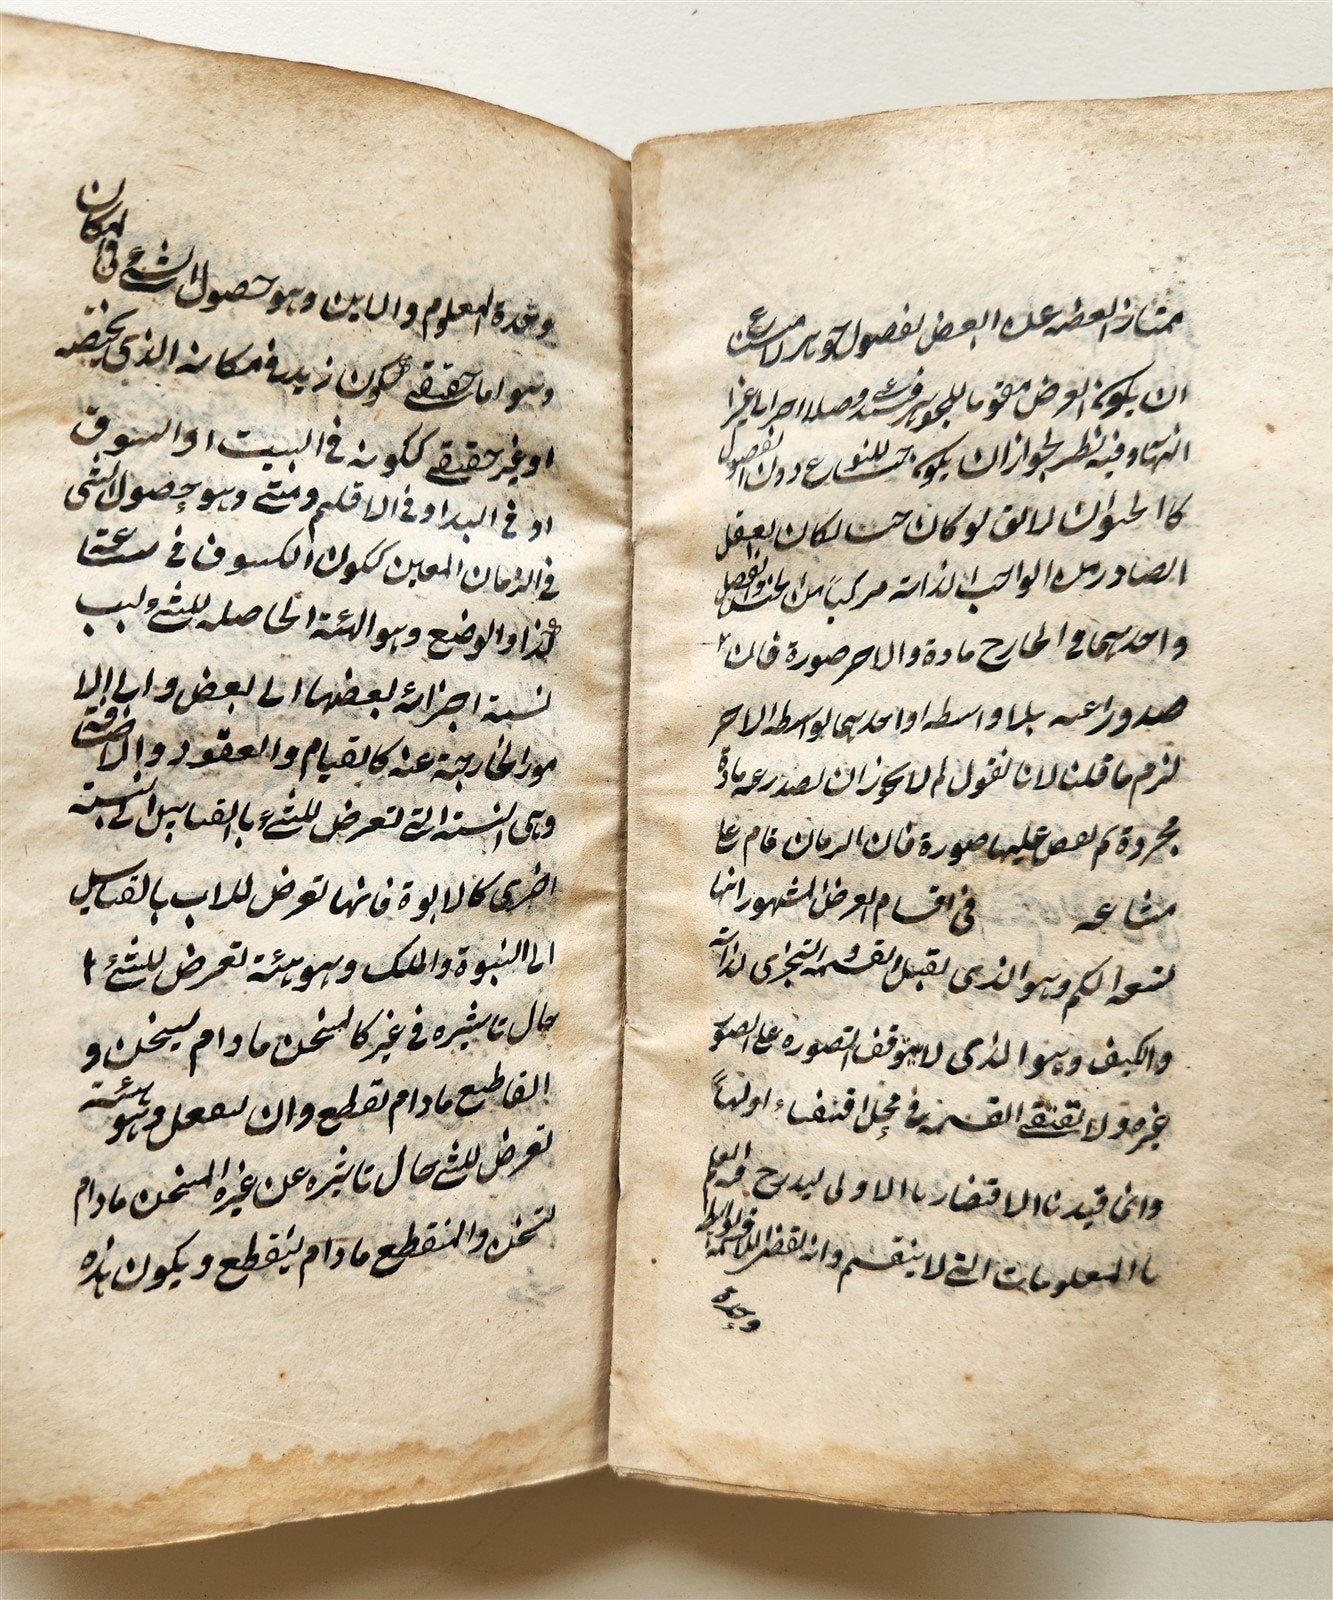 ممتاز البعضه عن البعض بفصول جوهر لامتناع
ان يكون العرض مقوما للجوهر فيتد وصله اجزاء غير
النهاية وفيه نظر لجواز ان يكون جنسا للنوع دون الفصول
كالحيوان لا يق لو كان جنسا لكان العقل
الصادر من الواجب لذاته مركبا من الجنس والفصل
واحدهما في الخارج مادة والاخر صورة فان
صدورا عنه بلا واسطه او احدهما بواسطه الاخر
لزم ما قلنا لانا نقول لم لا يجوز ان يصدر عنه مادة
مجردة ثم يفيض عليها صورة فان البرهان قام على
امتناعه في اقسام العرض المشهور انها
تسعه الكم وهو الذى يقبل القسمه والتجزى لذاته
والكيف وهو الذى لا يتوقف تصوره على تصور
غيره ولا يقتضى القسمة في محله اقتضاء اوليا
وانما قيدنا الاقتضاء بالاولى ليندرج فيه العلم
بالمعلومات التى لا ينقسم وانه يقتضى اللاقسمة بواسطة
وحدة
وحدة المعلوم والاين وهو حصول الشئ في المكان
وهو اما حقيقى ككون زيد في مكانه الذى يخصه
او غير حقيقى ككونه في البيت او السوق
او في البلد او في الاقليم ومتى وهو حصول الشئ
في الزمان المعين ككون الكسوف في ساعة
كذا والوضع وهو الهيئة الحاصله للشئ بسبب
نسبة اجزائه بعضها الى بعض والى الا
مور الخارجية عنه كالقيام والعقود والاضافة
وهى النسبة التى تعرض للشئ بالقياس الى نسبة
اخرى كالابوة فانها تعرض للاب بالقياس
الى البنوة والملك وهو هيئة تعرض للشئ
حال تاثيره في غير كالمسخن مادام يسخن و
القاطع مادام يقطع وان ينفعل وهو هيئة
تعرض للشئ حال تاثيره عن غيره المتسخن مادام
يتسخن والمنقطع مادام ينقطع ويكون هذه